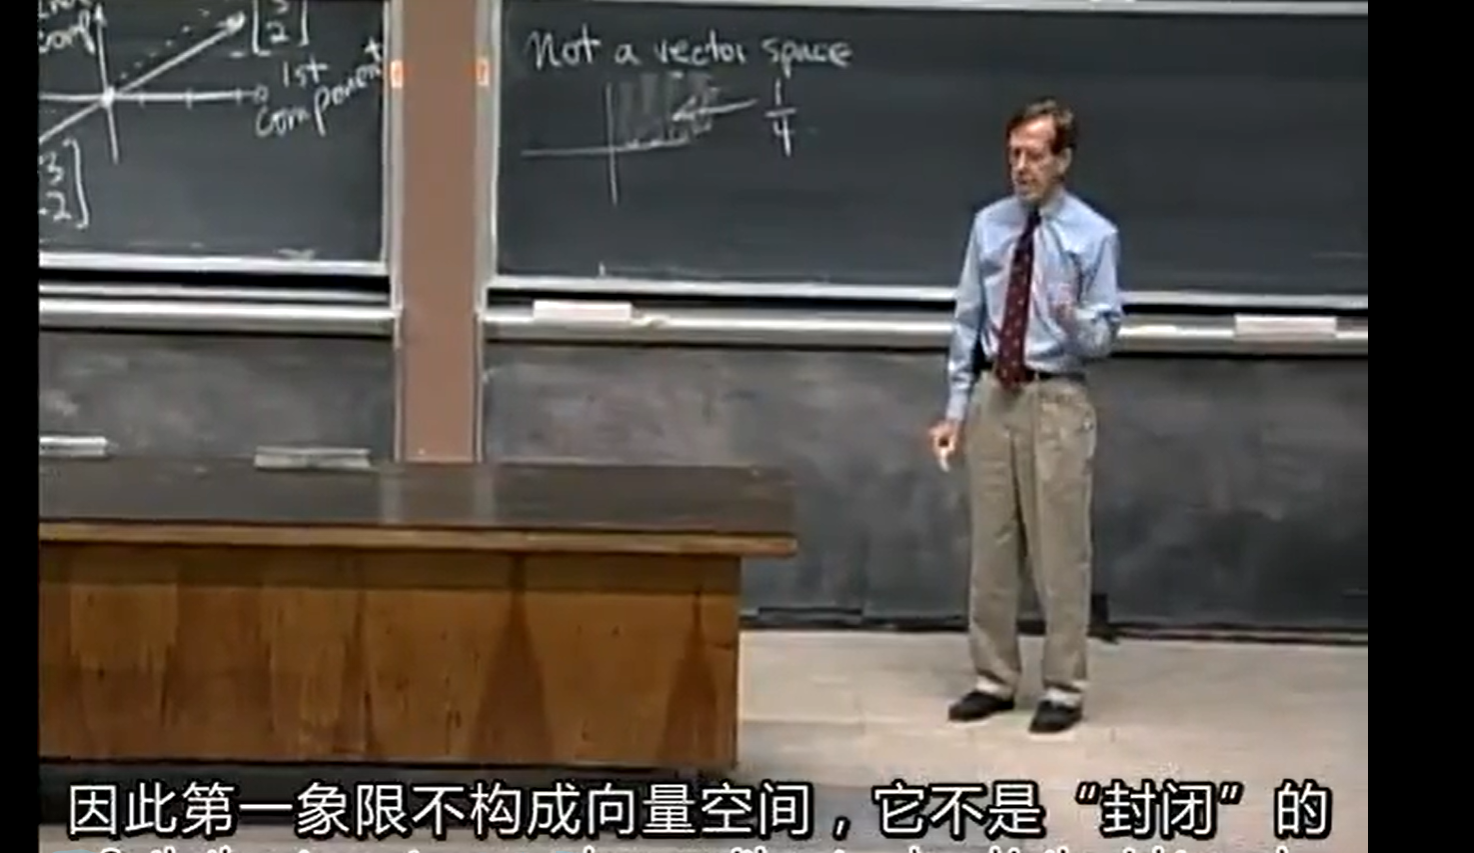 comp
[3
2]
1st
component
3
-2]
Not a vector space
1
4
因此第一象限不构成向量空间，它不是“封闭”的